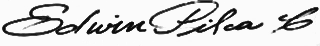 Edwin Pilca C